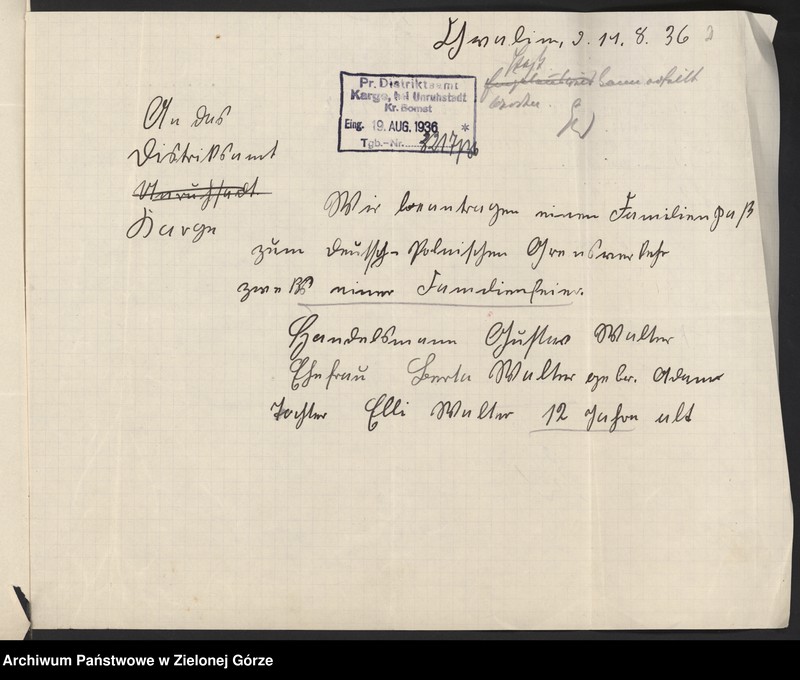 Chwalim, d. 11. 8. 36
Pr. Distriktsamt
Karge, bei Unruhstadt
Kr. Bomst
Eing. 19. AUG. 1936 *
Tgb.-Nr. 3217/36
kann erteilt
werden.
An das
Distriktsamt
Unruhstadt.
Karge
Wir beantragen einen Familienpaß
zum deutsch-Polnischen Grensverkehr
zweks einer Familienfeier.
Handelsmann Gustav Walter
Ehefrau Berta Walter geb. Adam
Tochter Elli Walter 12 Jahre alt
Archiwum Państwowe w Zielonej Górze